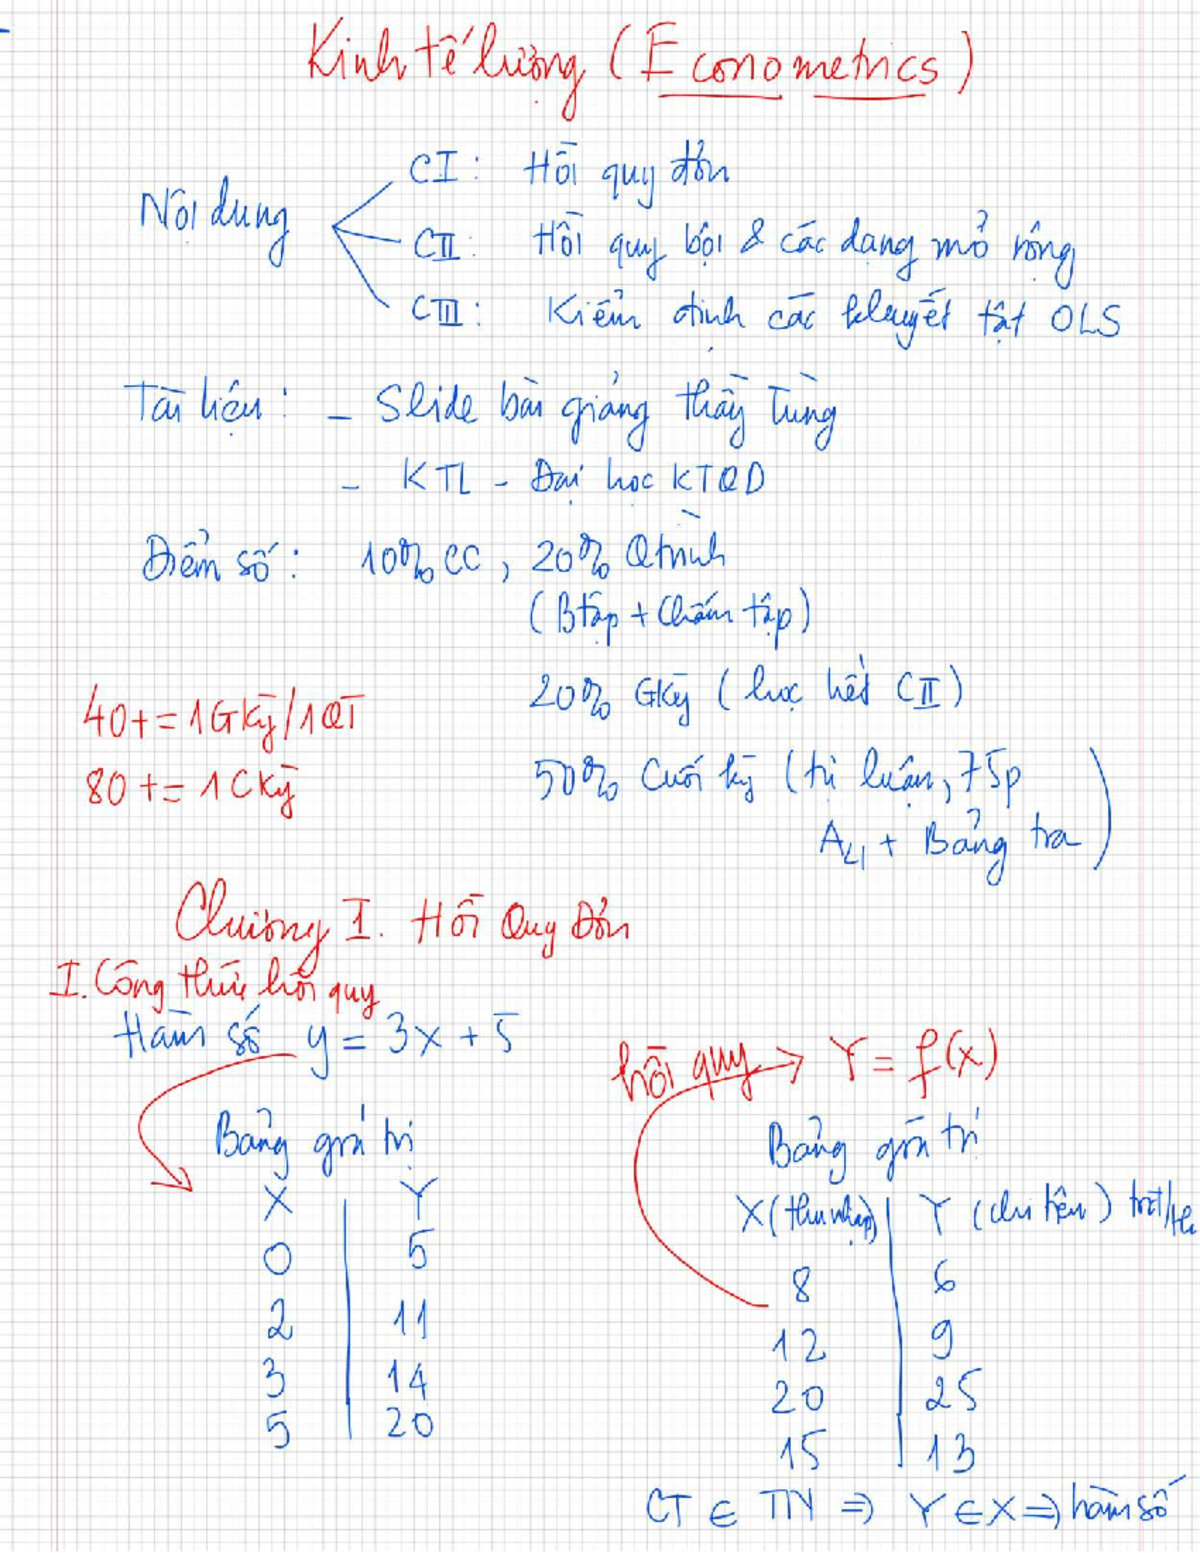 Kinh tế lượng (Econometrics)
Nội dung
CI: Hồi quy đơn
CII: Hồi quy bội & các dạng mở rộng
CIII: Kiểm định các khuyết tật OLS
Tài liệu: - Slide bài giảng thầy Tùng
- KTL - Đại học KTQD
Điểm số: 10% CC, 20% Qtrình
(Btập + Chấm tập)
20% Gkỳ (học hết CII)
40+ = 1Gkỳ/1QT
80+ = 1Ckỳ
50% Cuối kỳ (tự luận, 75p
A4 + Bảng tra)
Chương I. Hồi Quy Đơn
I. Công thức hồi quy
Hàm số y = 3x + 5
hồi quy → Y = f(x)
Bảng giá trị
X Y
0 5
2 11
3 14
5 20
Bảng giá trị
X (thu nhập) Y (chi tiêu)
8 6
12 9
20 25
15 13
CT ∈ TN ⇒ Y ∈ X ⇒ hàm số